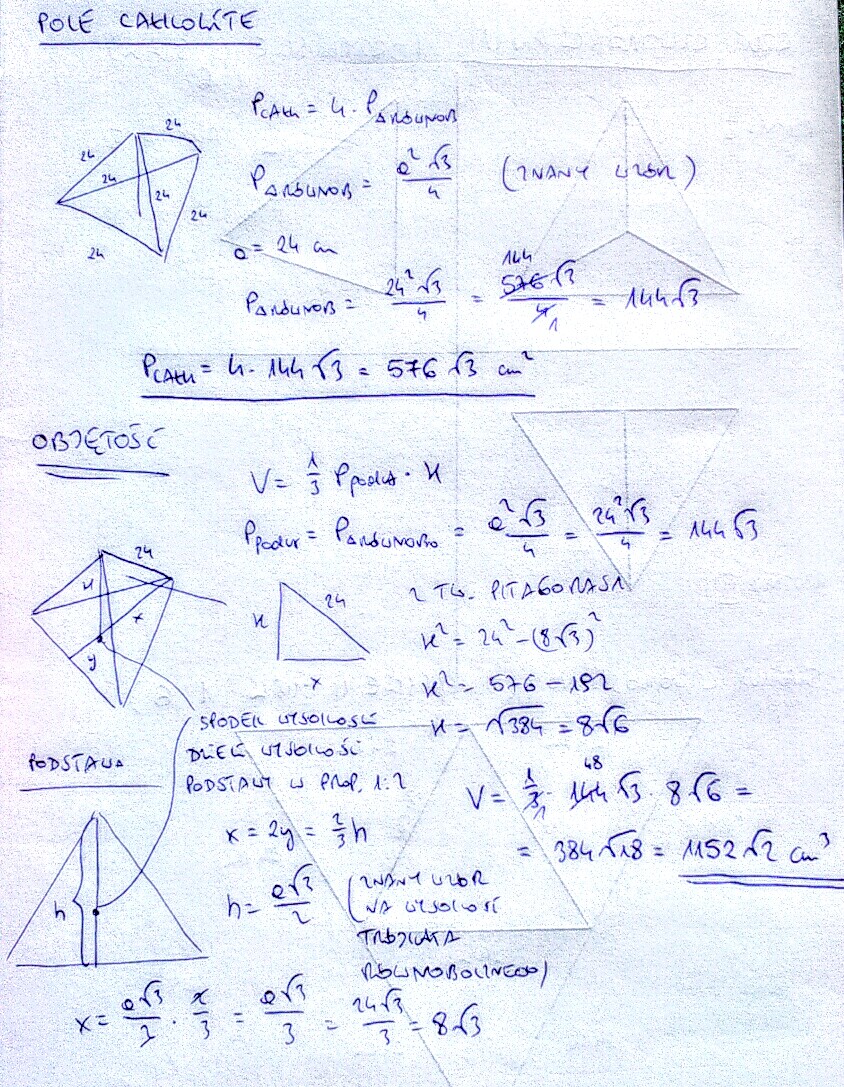 POLE CAŁKOWITE
24
24
24
24
24
24
P_CAŁK = 4 · P_ΔRÓWNOB
P_ΔRÓWNOB = a²√3/4 (ZNANY WZÓR)
a = 24 cm
P_ΔRÓWNOB = 24²√3/4 = 576√3/4 = 144√3
144
1
P_CAŁK = 4 · 144√3 = 576√3 cm²
OBJĘTOŚĆ
V = 1/3 P_podst · H
P_podst = P_ΔRÓWNOB = a²√3/4 = 24²√3/4 = 144√3
24
H
x
y
H
24
x
Z TW. PITAGORASA
H² = 24² - (8√3)²
H² = 576 - 192
H = √384 = 8√6
SPODEK WYSOKOŚCI
DZIELI WYSOKOŚĆ
PODSTAWY W PROP. 1:2
PODSTAWA
h
x = 2y = 2/3 h
h = a√3/2 (ZNANY WZÓR
NA WYSOKOŚĆ
TRÓJKĄTA
RÓWNOBOCZNEGO)
V = 1/3 · 144√3 · 8√6 =
1
48
= 384√18 = 1152√2 cm³
x = a√3/2 · 2/3 = a√3/3 = 24√3/3 = 8√3